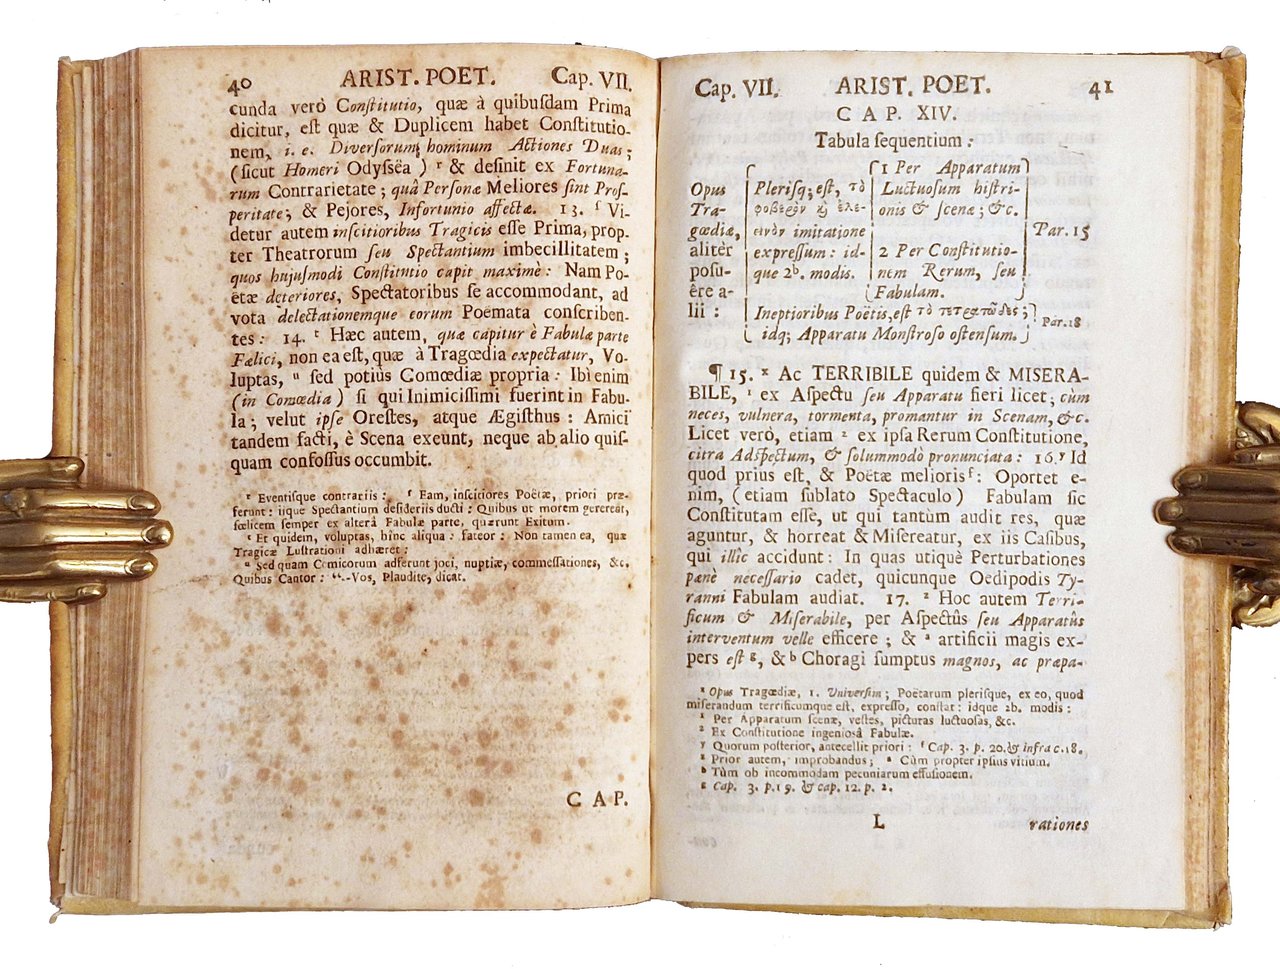 40 ARIST. POET. Cap. VII.
cunda verò Conſtitutio, quæ à quibuſdam Prima
dicitur, eſt quæ & Duplicem habet Conſtitutio-
nem, i. e. Diverſorum hominum Actiones Duas;
(ſicut Homeri Odyſſëa) r & deſinit ex Fortuna-
rum Contrarietate; quâ Perſonæ Meliores ſint Proſ-
peritate; & Pejores, Infortunio affectæ. 13. ſ Vi-
detur autem inſcitioribus Tragicis eſſe Prima, prop-
ter Theatrorum ſeu Spectantium imbecillitatem;
quos hujuſmodi Conſtitutio capit maximè: Nam Po-
ëtæ deteriores, Spectatoribus ſe accommodant, ad
vota delectationemque eorum Poëmata conſcriben-
tes: 14. t Hæc autem, quæ capitur è Fabulæ parte
Fælici, non ea eſt, quæ à Tragœdia expectatur, Vo-
luptas, u ſed potiùs Comœdiæ propria: Ibi enim
(in Comœdia) ſi qui Inimiciſſimi fuerint in Fabu-
la; velut ipſe Oreſtes, atque Ægiſthus: Amici
tandem facti, è Scena exeunt, neque ab alio quiſ-
quam confoſſus occumbit.
r Eventiſque contrariis: ſ Eam, inſcitiores Poëtæ, priori præ-
ferunt: iique Spectantium deſideriis ducti: Quibus ut morem gererent,
fœlicem ſemper ex alterâ Fabulæ parte, quærunt Exitum.
t Et quidem, voluptas, hinc aliqua: fateor: Non tamen ea, quæ
Tragicæ Luſtrationi adhæret:
u Sed quam Comicorum adferunt joci, nuptiæ, commeſſationes, &c.
Quibus Cantor: “.-Vos, Plaudite, dicat.
C A P.
Cap. VII. ARIST. POET. 41
C A P. XIV.
Tabula ſequentium:
Opus
Tra-
gœdiæ,
alitèr
poſu-
êre a-
lii:
Pleriſq; eſt, τὸ
φοβερὸν ϗ ἐλε-
εινὸν imitatione
expreſſum: id-
que 2b. modis.
1 Per Apparatum
Luctuoſum hiſtri-
onis & ſcenæ; &c.
2 Per Conſtitutio-
nem Rerum, ſeu
Fabulam.
Par. 15
Ineptioribus Poëtis, eſt τὸ τερατῶδες;
idq; Apparatu Monſtroſo oſtenſum.
Par. 18
¶ 15. x Ac TERRIBILE quidem & MISERA-
BILE, 1 ex Aſpectu ſeu Apparatu fieri licet; cùm
neces, vulnera, tormenta, promantur in Scenam, &c.
Licet verò, etiam 2 ex ipſa Rerum Conſtitutione,
citra Adſpectum, & ſolummodò pronunciata: 16. y Id
quod prius eſt, & Poëtæ melioris f: Oportet e-
nim, (etiam ſublato Spectaculo) Fabulam ſic
Conſtitutam eſſe, ut qui tantùm audit res, quæ
aguntur, & horreat & Miſereatur, ex iis Caſibus,
qui illìc accidunt: In quas utiquè Perturbationes
pænè neceſſario cadet, quicunque Oedipodis Ty-
ranni Fabulam audiat. 17. z Hoc autem Terri-
ficum & Miſerabile, per Aſpectûs ſeu Apparatûs
interventum velle efficere; & a artificii magis ex-
pers eſt g, & b Choragi ſumptus magnos, ac præpa-
x Opus Tragœdiæ, 1. Univerſim; Poëtarum pleriſque, ex eo, quod
miſerandum terrificumque eſt, expreſſo, conſtat: idque 2b. modis:
1 Per Apparatum ſcenæ, veſtes, picturas luctuoſas, &c.
2 Ex Conſtitutione ingenioſâ Fabulæ.
y Quorum poſterior, antecellit priori: f Cap. 3. p. 20. & infra c. 18.
z Prior autem, improbandus; a Cùm propter ipſius vitium.
b Tùm ob incommodam pecuniarum effuſionem.
g Cap. 3. p. 19. & cap. 12. p. 2.
L rationes